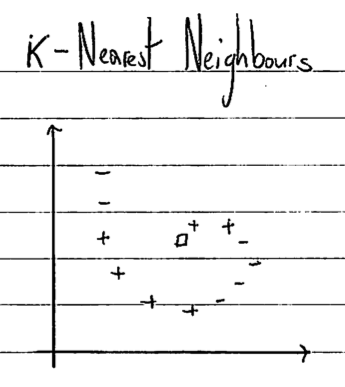 K-Nearest Neighbours